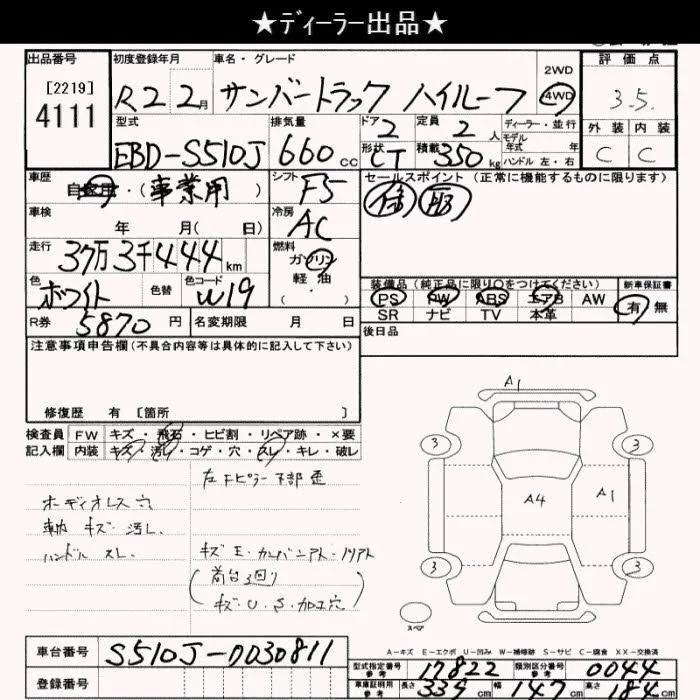 ★ディーラー出品★
出品番号
[2219]
4111
初度登録年月
R2 2月
車名・グレード
サンバートラック ハイルーフ
2WD
4WD
評価点
3.5
外装 内装
C C
型式
EBD-S510J
排気量
660cc
ドア
2
形状
CT
定員
2人
積載
350kg
ディーラー・並行
モデル年式 年
ハンドル 左・右
車歴
自家用・(事業用)
シフト
F5
セールスポイント(正常に機能するものに限ります)
車検
年 月( 日)
冷房
AC
走行
37万3千444km
燃料
ガソリン
軽・油
・( )
色
ホワイト
色替
色コード
W19
装備品(純正品に限り○をつけてください)
PS PW ABS エアB AW
SR ナビ TV 本革
新車保証書
有 無
R券
5870円
名変期限 月 日
後日品
注意事項申告欄(不具合内容等は具体的に記入して下さい)
修復歴 有 [箇所 ]
検査員記入欄
FW キズ・飛石・ヒビ割・リペア跡・×要
内装 キズ・汚レ・コゲ・穴・スレ・キレ・破レ
左Fピラー下部歪
オーディオレス穴
車内 キズ・汚レ
ハンドル スレ
荷台3回り
キズ・U・S・加工穴
A1
3 3
A4 A1
3 3
スペア
A-キズ E-エクボ U-凹み W-補修跡 S-サビ C-腐食 XX-交換済
車台番号
S510J-0030811
登録番号
型式指定番号 参考
17822
類別区分番号 参考
0044
車庫証明用 参考
長さ 339cm 幅 147cm 高さ 184cm